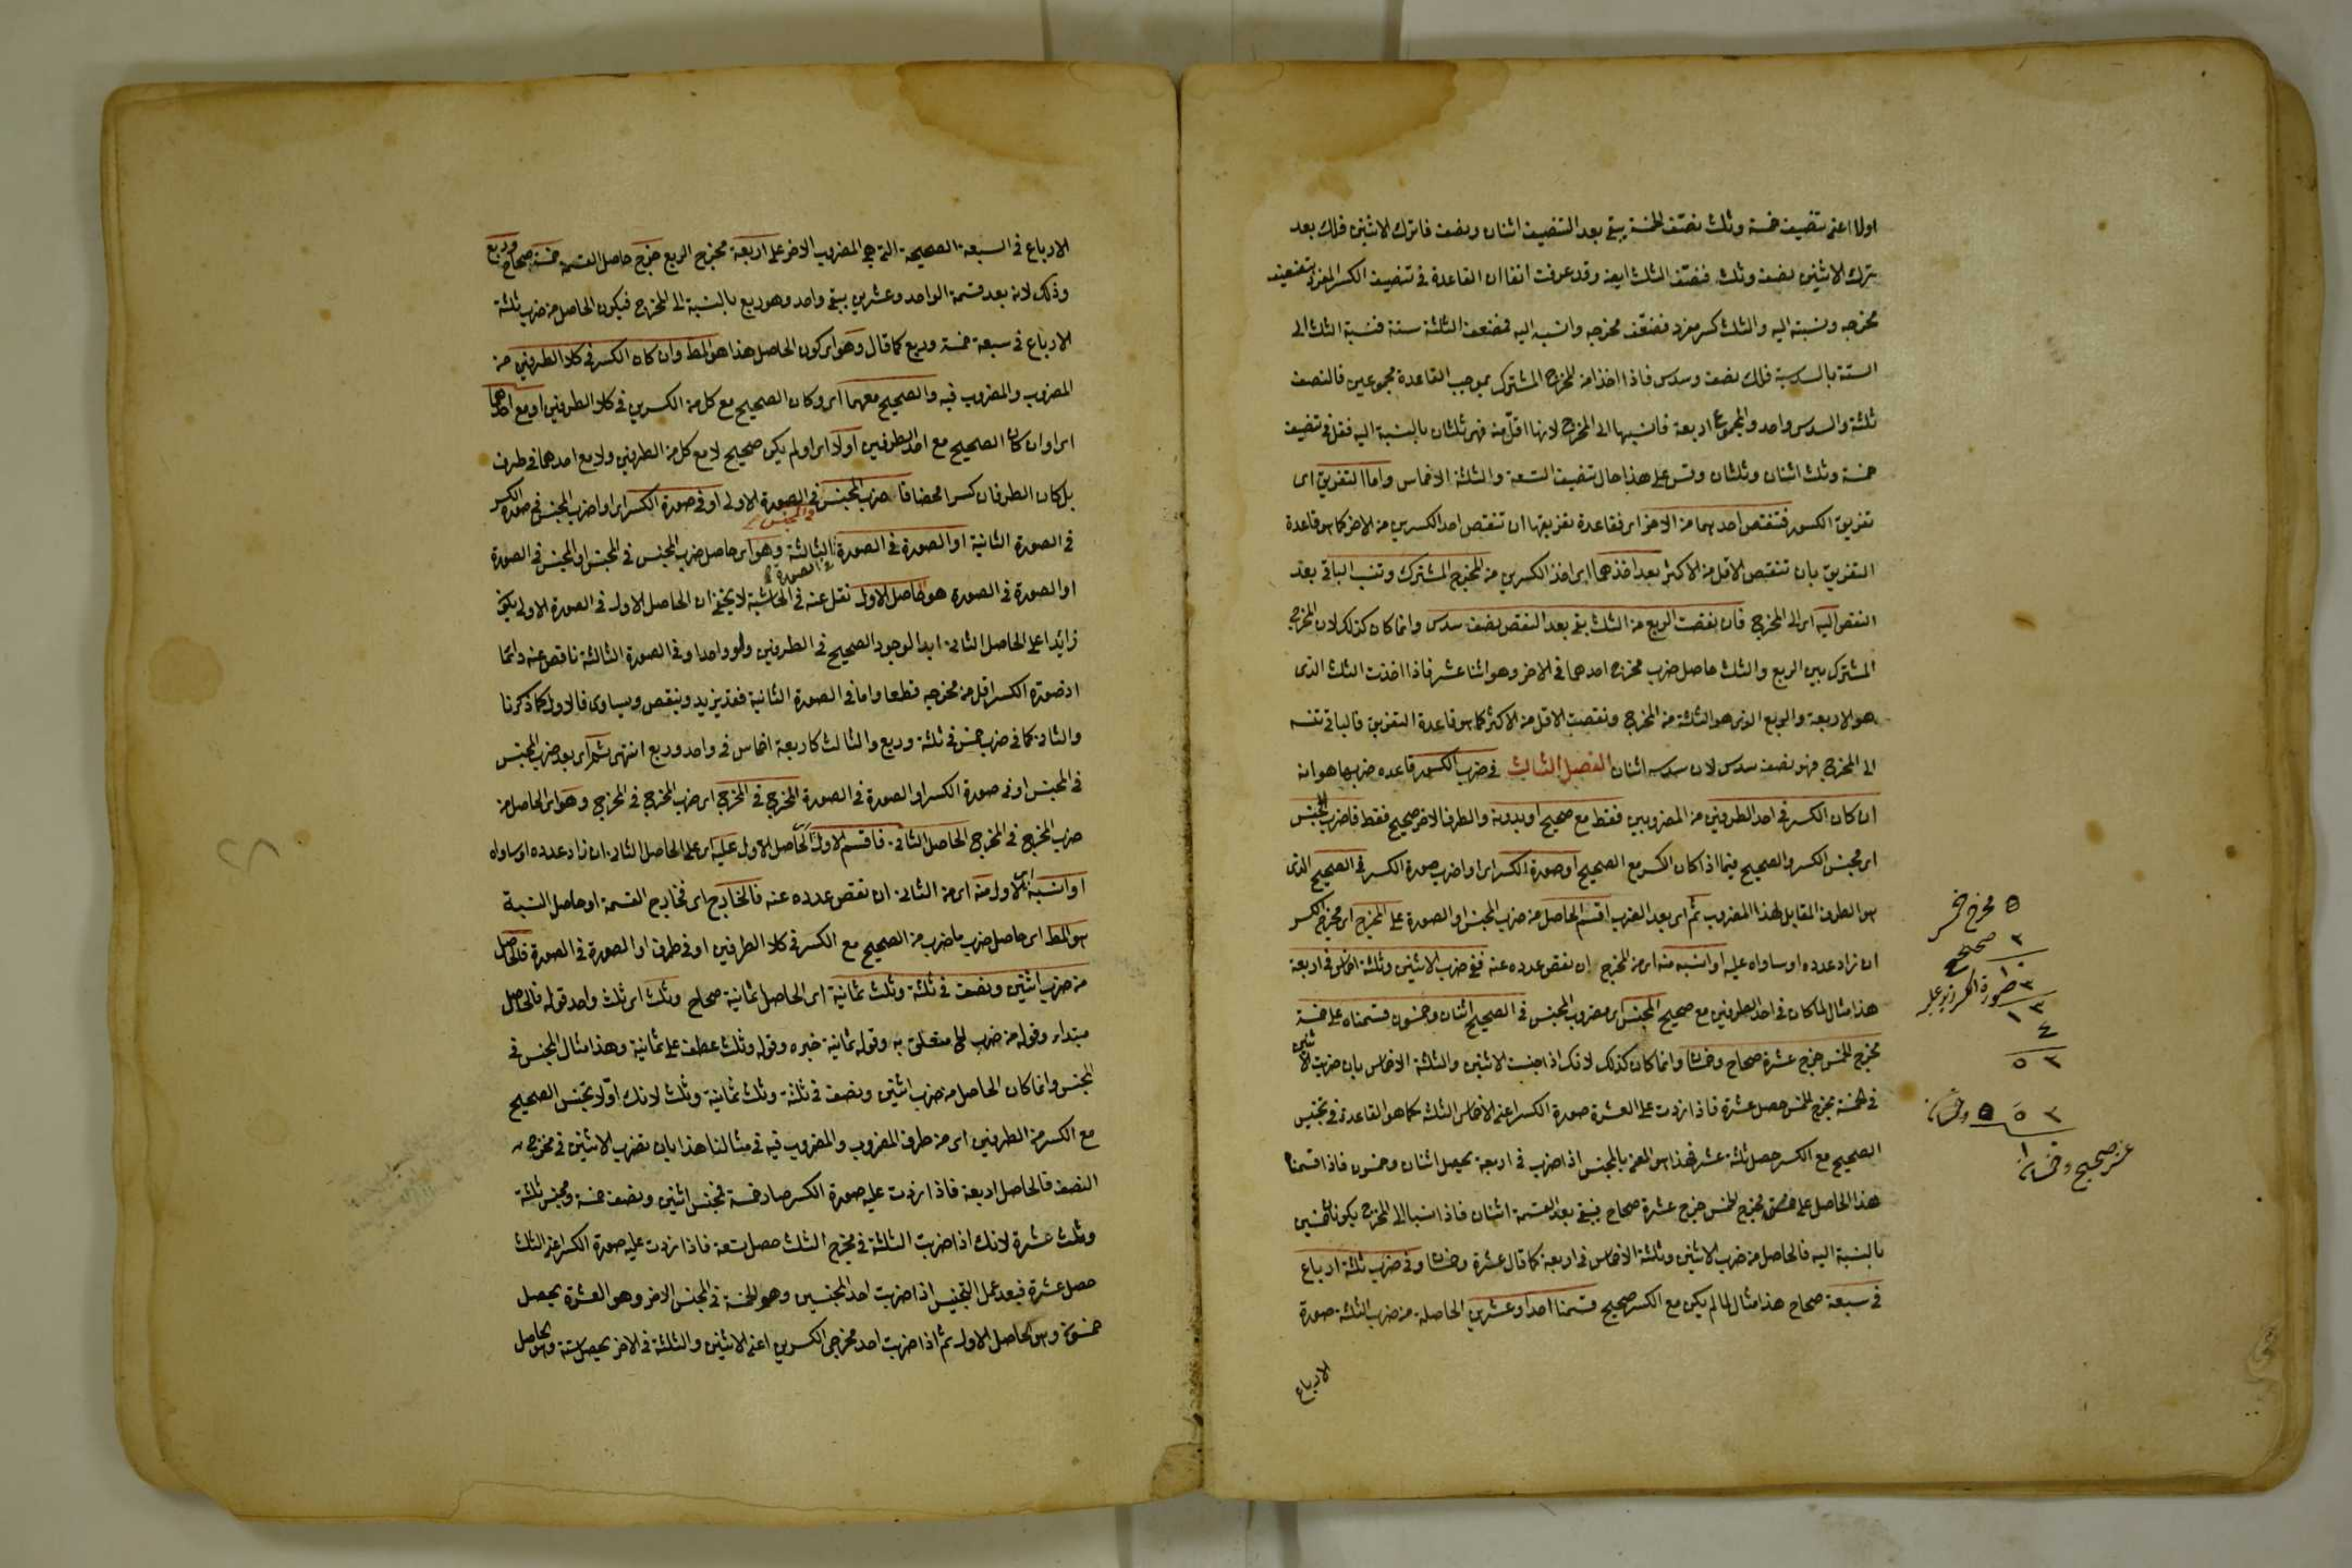 اولا اعنى تنصيف خمسة وثلث نصف الخمسة يبقى بعد التنصيف اثنان ونصف فاترك الاثنين فلك بعد
ترك الاثنين نصف وثلث فنصف الثلث ايضا وقد عرفت انفا ان القاعدة فى تنصيف الكسر المفرد تضعيف
مخرجه ونسبته اليه والثلث كسر مفرد فضعف مخرجه وانسبه اليه فضعف الثلثة ستة فنسبة الثلث الى
الستة بالسدسية فلك نصف وسدس فاذا اخذا من المخرج المشترك بموجب القاعدة مجموعين فالنصف
ثلثة والسدس واحد والمجموع اربعة فانسبها الى المخرج لانها اقل منه فهى ثلثان بالنسبة اليه فقل فى تنصيف
خمسة وثلث اثنان وثلثان وقس على هذا حال تنصيف التسعة والثلثة الاخماس واما التفريق اى
تفريق الكسور فتنقص احدهما من الاخر اى فقاعدة تفريقها ان تنقص احد الكسرين من الاخر كما هو قاعدة
التفريق بان تنقص الاقل من الاكثر بعد اخذهما اى اخذ الكسرين من المخرج المشترك وتنسب الباقى بعد
النقص اليه اى الى المخرج فان نقصت الربع من الثلث بقى بعد النقص نصف سدس وانما كان كذلك لان المخرج
المشترك بين الربع والثلث حاصل ضرب مخرج احدهما فى الاخر وهو اثنا عشر فاذا اخذت الثلث الذى
هو الاربعة والربع الذى هو الثلثة من المخرج ونقصت الاقل من الاكثر كما هو قاعدة التفريق فالباقى تنسبه
الى المخرج فهو نصف سدس لان سدسه اثنان الفصل الثالث فى ضرب الكسور قاعدة ضربها هو انه
ان كان الكسر فى احد الطرفين من المضروبين فقط مع صحيح او بدونه والطرف الاخر صحيح فقط فاضرب المجنس
اى مجنس الكسر والصحيح فيما اذا كان الكسر مع الصحيح او صورة الكسر اى او اضرب صورة الكسر فى الصحيح الذى
هو الطرف المقابل لهذا المضروب ثم اى بعد الضرب اقسم الحاصل من ضرب المجنس او الصورة على المخرج اى مخرج الكسر
ان زاد عدده او ساواه عليه او انسبه منه اى من المخرج ان نقص عدده عنه ففى ضرب الاثنين وثلثة اخماس فى اربعة
هذا مثال لما كان فى احد الطرفين مع صحيح المجنس اى مضروب المجنس فى الصحيح اثنان وخمسون قسمناه على خمسة
مخرج الخمس خرج عشرة صحاح وخمسان وانما كان كذلك لانك اذا جنست الاثنين والثلثة الاخماس بان ضربت الاثنين
فى الخمسة مخرج الخمس حصل عشرة فاذا زدت على العشرة صورة الكسر اعنى الاخماس الثلثة كما هو القاعدة فى تجنيس
الصحيح مع الكسر حصل ثلثة عشر فهذا هو المعنى بالمجنس اذا ضرب فى اربعة يحصل اثنان وخمسون فاذا قسمنا
هذا الحاصل على خمسة مخرج الخمس خرج عشرة صحاح يبقى بعد القسمة اثنان فاذا انسبا الى المخرج يكونا خمسين
بالنسبة اليه فالحاصل من ضرب الاثنين وثلثة الاخماس فى اربعة كما قال عشرة وخمسان وفى ضرب ثلثة ارباع
فى سبعة صحاح هذا مثال لما لم يكن مع الكسر صحيح قسمنا احدا وعشرين الحاصلة من ضرب الثلثة صورة
الارباع
٥ مخرج خمس
٢ صحيح
١٠
٣ صورة الكسر
١٣
٤
٥٢
٥٢ ٥
عشر صحيح وخمسان
الارباع فى السبعة الصحيحة التى هى المضروب الاخر على اربعة مخرج الربع خرج حاصل القسمة خمسة صحاح وربع
وذلك لانه بعد قسمة الواحد وعشرين يبقى واحد وهو ربع بالنسبة الى المخرج فيكون الحاصل من ضرب ثلثة
الارباع فى سبعة خمسة وربع كما قال وهو اى كون الحاصل هذا هو المط وان كان الكسر فى كلا الطرفين من
المضروب والمضروب فيه والصحيح معهما اى وكان الصحيح مع كل من الكسرين فى كلا الطرفين او مع احدهما
اى او ان كان الصحيح مع احد الطرفين اولا اى او لم يكن صحيح لا مع كل من الطرفين ولا مع احدهما فى طرف
بل كان الطرفان كسرا محضا فاضرب المجنس فى المجنس فى الصورة الاولى او فى صورة الكسر اى او اضرب المجنس فى صورة الكسر
فى الصورة الثانية او الصورة فى الصورة فى الصورة الثالثة وهو اى حاصل ضرب المجنس فى المجنس او المجنس فى الصورة
او الصورة فى الصورة هو الحاصل الاول نقل عنه فى الحاشية لا يخفى ان الحاصل الاول فى الصورة الاولى يكون
زائدا على الحاصل الثانى ابدا لوجود الصحيح فى الطرفين ولو واحدا وفى الصورة الثالثة ناقص عنه دائما
اذ صورة الكسر اقل من مخرجه قطعا واما فى الصورة الثانية فقد يزيد وينقص ويساوى فالاول كما ذكرنا
والثانى كما فى ضرب خمس فى ثلثة وربع والثالث كاربعة اخماس فى واحد وربع انتهى ثم اى بعد ضرب المجنس
فى المجنس او فى صورة الكسر او الصورة فى الصورة المخرج فى المخرج اى ضرب المخرج فى المخرج وهو اى الحاصل من
ضرب المخرج فى المخرج الحاصل الثانى فاقسم الاول اى الحاصل الاول عليه اى على الحاصل الثانى ان زاد عدده او ساواه
او انسبه اى الاول منه اى من الثانى ان نقص عدده عنه فالخارج اى فخارج القسمة او حاصل النسبة
هو المط اى حاصل ضرب ما ضرب من الصحيح مع الكسر فى كلا الطرفين او فى طرف او الصورة فى الصورة فالحاصل
من ضرب اثنين ونصف فى ثلثة وثلث ثمانية اى الحاصل ثمانية صحاح وثلث اى ثلث واحد قوله فالحاصل
مبتداء وقوله من ضرب الخ متعلق به وقوله ثمانية خبره وقوله وثلث عطف على ثمانية وهذا مثال المجنس فى
المجنس وانما كان الحاصل من ضرب اثنين ونصف فى ثلثة وثلث ثمانية وثلث لانك اولا تجنس الصحيح
مع الكسر من الطرفين اى من طرف المضروب والمضروب فيه فى مثالنا هذا بان تضرب الاثنين فى مخرجه
النصف فالحاصل اربعة فاذا زدت عليه صورة الكسر صار خمسة فمجنس اثنين ونصف خمسة ومجنس ثلثة
وثلث عشرة لانك اذا ضربت الثلثة فى مخرج الثلث حصل تسعة فاذا زدت عليه صورة الكسر اعنى الثلث
حصل عشرة فبعد عمل التجنيس اذا ضربت احد المجنسين وهو الخمسة فى المجنس الاخر وهو العشرة يحصل
خمسون وهو الحاصل الاول ثم اذا ضربت احد مخرجى الكسرين اعنى الاثنين والثلثة فى الاخر يحصل ستة وهو الحاصل